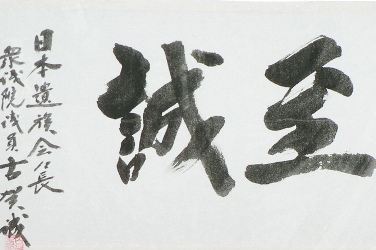 至誠
日本遺族会会長
衆議院議員古賀誠